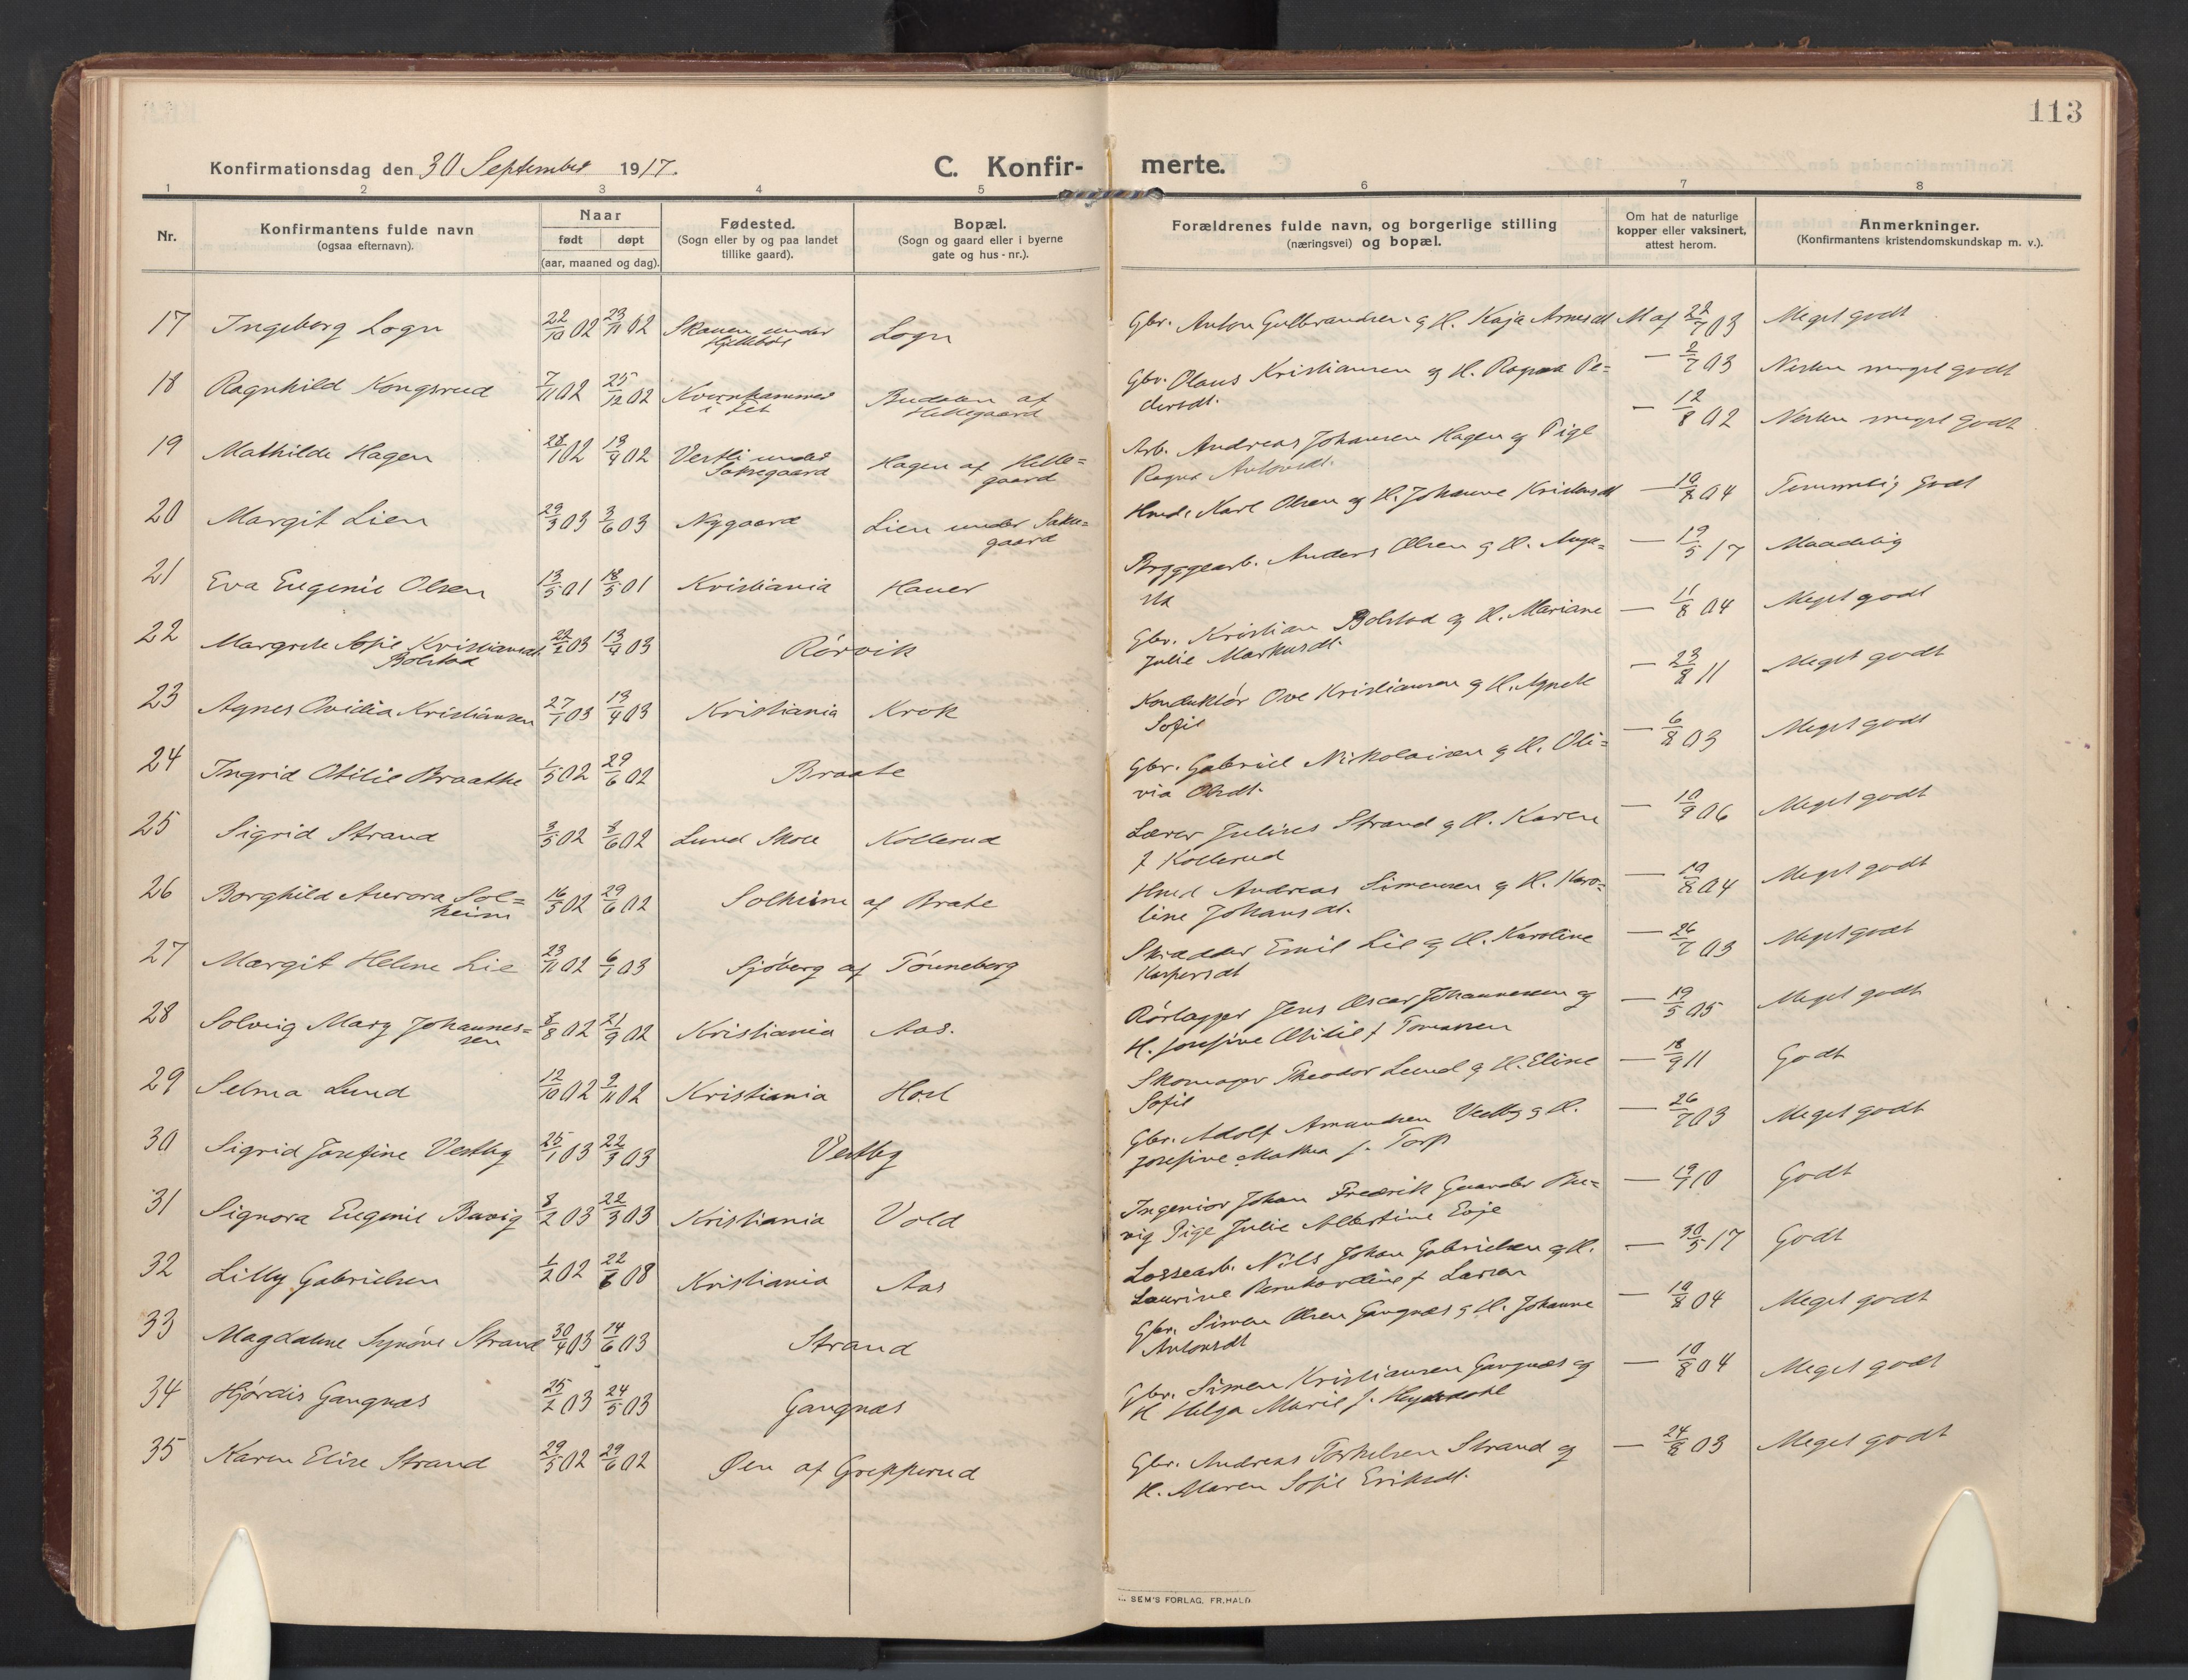 113
Konfirmationsdag den 30 September 1917.
C. Konfir-
merte.
1 2 3 4 5 6 7 8
Nr.
Konfirmantens fulde navn
(ogsaa efternavn).
Naar
født døpt
(aar, maaned og dag).
Fødested.
(Sogn eller by og paa landet
tillike gaard).
Bopæl.
(Sogn og gaard eller i byerne
gate og hus-nr.).
Forældrenes fulde navn, og borgerlige stilling
(næringsvei) og bopæl.
Om hat de naturlige
kopper eller vaksinert,
attest herom.
Anmerkninger.
(Konfirmantens kristendomskundskap m. v.).
17 Ingeborg Logn 22/10 02 23/11 02 Skauen under Logn Gbr. Anton Gulbrandsen og H. Kaja Arnesdt M af 22/7 03 Meget godt
18 Ragnhild Kongsrud 7/11 02 25/12 02 Kvernhammer Budalen af Gbr. Olaus Kristiansen og H. Ragna Pe= — 2/7 03 Nesten meget godt
i Fet Hellegaard dersdt.
19 Mathilde Hagen 28/1 02 13/4 02 Vestli under Hagen af Helle= Arb. Andreas Johansen Hagen og Pige — 12/8 02 Nesten meget godt
Saksegaard gaard Ragna Antonsdt.
20 Margit Lien 29/3 03 3/6 03 Nygaard Lien under Sakse= Hmd. Karl Olsen og H. Johanne Kristensdt — 10/8 04 Temmelig godt
gaard
21 Eva Eugenie Olsen 13/5 01 18/5 01 Kristiania Haner Bryggearb. Anders Olsen og H. Augu= — 19/5 17 Maadelig
sta
22 Margrete Sofie Kristiansdt. 22/2 03 13/4 03 Rørvik Gbr. Kristian Bolstad og H. Mariane — 11/8 04 Meget godt
Bolstad Julie Markusdt.
23 Agnes Ovidia Kristiansen 27/1 03 13/4 03 Kristiania Krok Konduktør Ove Kristiansen og H. Agnete — 23/8 11 Meget godt
Sofie
24 Ingrid Otilie Braathe 1/5 02 29/6 02 Braate Gbr. Gabriel Nikolaisen og H. Oli= — 6/8 03 Meget godt
via Olsdt.
25 Sigrid Strand 3/5 02 8/6 02 Lund Skole Kollerud Lærer Julius Strand og H. Karen — 10/9 06 Meget godt
f Kollerud
26 Borghild Aurora Sol= 16/5 02 29/6 02 Solheim af Brate Hmd Andreas Simensen og H. Karo= — 10/8 04 Meget godt
heim line Johansdt.
27 Margit Helene Lie 23/11 02 6/1 03 Sjøberg af Tønneberg Skrædder Emil Lie og H. Karoline — 26/7 03 Meget godt
Kaspersdt
28 Solveig Mary Johannes= 8/8 02 21/9 02 Kristiania Aas. Rørlægger Jens Oscar Johannessen og — 19/5 05 Meget godt
sen H. Josefine Otilie f Tomassen
29 Selma Lund 12/10 02 9/11 02 Kristiania Hoel Skomager Theodor Lund og H. Eline — 18/9 11 Godt
Sofie
30 Sigrid Josefine Vestby 25/1 03 22/3 03 Vestby Gbr. Adolf Amundsen Vestby og H. — 26/7 03 Meget godt
Josefine Mathea f. Torp
31 Signora Eugenie Buvig 8/2 03 22/3 03 Kristiania Vold Ingeniør Johan Fredrik Bu= Godt
vig Pige Julie Albertine Evje
32 Lilly Gabrielsen 1/2 02 22/6 08 Kristiania Aas Lossearb. Nils Johan Gabrielsen og H. — 30/5 17 Godt
Laurine Bernhardine f Larsen
33 Magdalene Synøve Strand 30/4 03 14/6 03 Strand Gbr. Simen Olsen Gangnæs og H. Johanne — 10/8 04 Meget godt
Antonsdt
34 Hjørdis Gangnæs 25/2 03 24/5 03 Gangnæs Gbr. Simen Kristiansen Gangnæs og — 10/8 04 Meget godt
H Helga Marie f.
35 Karen Elise Strand 29/5 02 29/6 02 Øen af Grepperud Gbr. Andreas Torkelsen Strand og — 24/8 03 Meget godt
H. Maren Sofie Eriksdt.
SEM'S FORLAG, FR.HALD